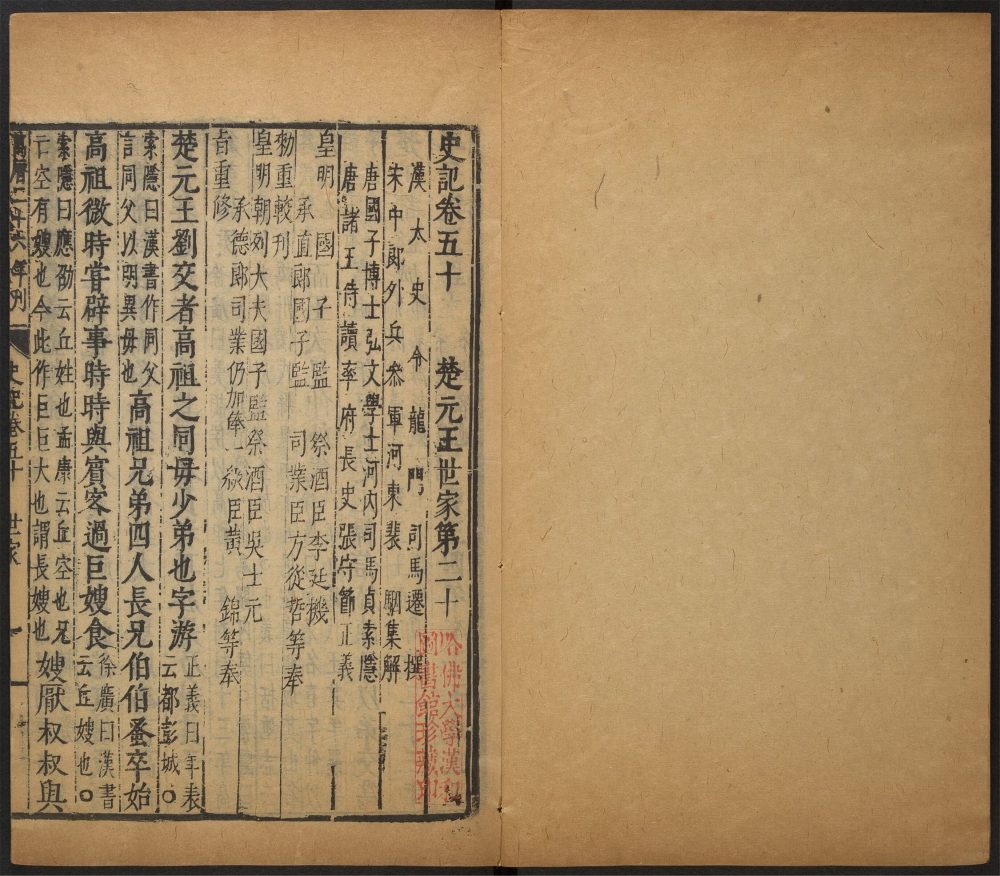 史記卷五十 楚元王世家第二十
漢太史令龍門司馬遷撰
宋中郎外兵叅軍河東裴駰集解
唐國子博士弘文學士河內司馬貞索隱
唐諸王侍讀率府長史張守節正義
皇明 國子監 祭酒臣李廷機
承直郎國子監 司業臣方從哲等奉
勑重較刊
皇明朝列大夫國子監祭酒臣吳士元
承德郎司業仍加俸一級臣黃 錦等奉
旨重修
楚元王劉交者高祖之同母少弟也字游
正義曰年表
云都彭城○
索隱曰漢書作同父
言同父以明異母也
高祖兄弟四人長兄伯伯蚤卒始
高祖微時嘗辟事時時與賓客過巨嫂食
徐廣曰漢書
云丘嫂也○
索隱曰應劭云丘姓也孟康云丘空也兄
亡空有嫂也今此作巨巨大也謂長嫂也
嫂厭叔叔與
萬曆二十六年刊
史記卷五十 世家 一
哈佛大學漢和
圖書館珍藏印